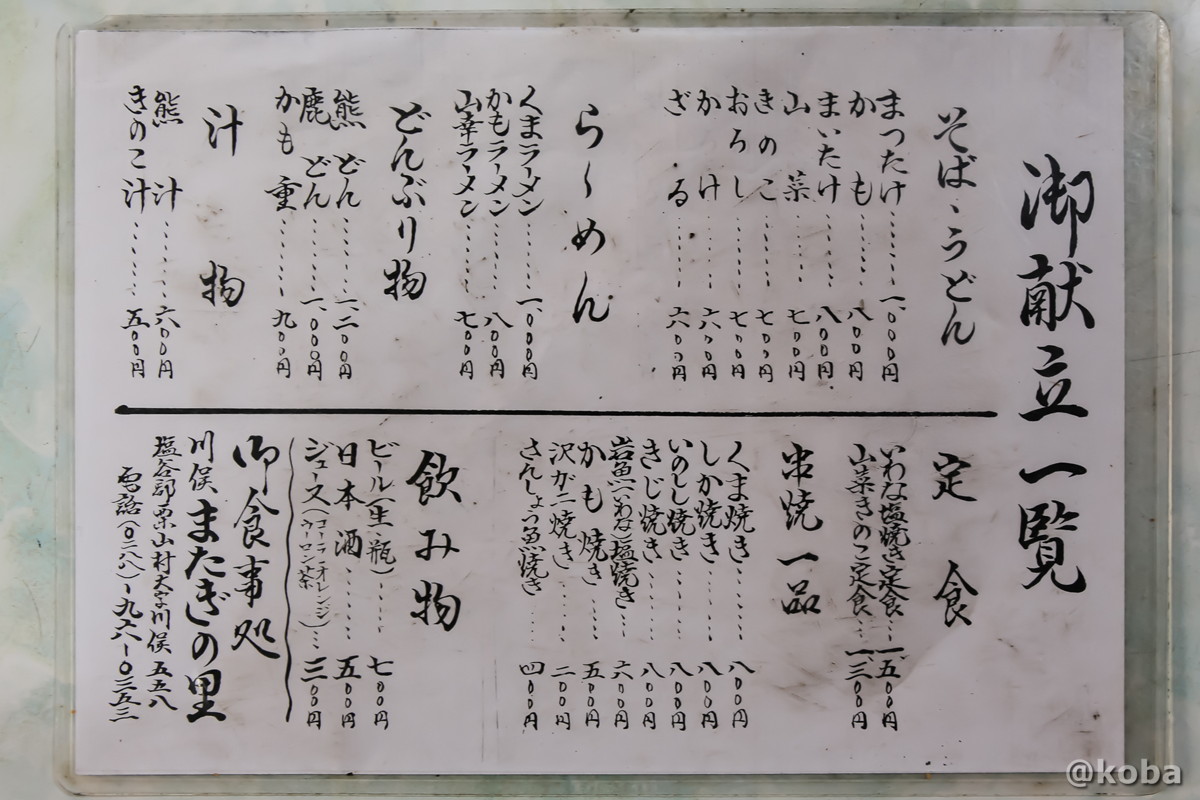 御献立一覧
そば、うどん
まつたけ……一、〇〇〇円
かも……八〇〇円
まいたけ……八〇〇円
山菜……七〇〇円
きのこ……七〇〇円
おろし……七〇〇円
かけ……六〇〇円
ざる……六〇〇円
らーめん
くまラーメン……一、〇〇〇円
かもラーメン……八〇〇円
山幸ラーメン……七〇〇円
どんぶり物
熊どん……一、二〇〇円
鹿どん……一、〇〇〇円
かも重……九〇〇円
汁物
熊汁……六〇〇円
きのこ汁……五〇〇円
定食
いわな塩焼き定食…一、五〇〇円
山菜きのこ定食…一、三〇〇円
串焼一品
くま焼き……八〇〇円
しか焼き……八〇〇円
いのしし焼き……八〇〇円
きじ焼き……八〇〇円
岩魚(いわな)塩焼き…六〇〇円
かも焼き……五〇〇円
沢がニ焼き……二〇〇円
さんしょう魚焼き……四〇〇円
飲み物
ビール(生、瓶)……七〇〇円
日本酒……五〇〇円
ジュース(コーラ、オレンジ、ウーロン茶)…三〇〇円
御食事処
川俣またぎの里
塩谷郡栗山村大字川俣五五八
電話(〇二八八)ー九六ー〇三五三
@koba